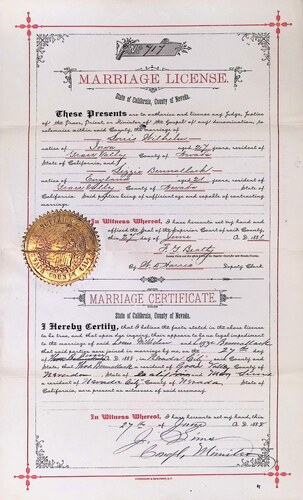 No. 717
MARRIAGE LICENSE.
State of California, County of Nevada.
These Presents are to authorize and license any Judge, Justice
of the Peace, Priest, or Minister of the Gospel of any denomination, to
solemnize within said County, the marriage of
Louis Wilhelm
native of Iowa aged 27 years, resident of
Grass Valley County of Nevada
State of California, and
Lizzie Bennallack
native of England aged 21 years, resident of
Grass Valley County of Nevada
State of California
said parties being of sufficient age and capable of contracting
marriage.
In Witness Whereof, I have hereunto set my hand and
affixed the Seal of the Superior Court of said County,
this 27 day of June A. D. 1888
F. G. Beatty
By W. D. Harris Deputy Clerk.
MARRIAGE CERTIFICATE.
State of California, County of Nevada.
I Hereby Certify, that I believe the facts stated in the above license
to be true, and that upon due inquiry, there appears to be no legal impediment
to the marriage of said Louis Wilhelm and Lizzie Bennallack
that said parties were joined in marriage by me, on the 27 th day
of June in Nevada City, in said County and
State; that Bennallack a resident of Grass Valley County of
Nevada, State of California and Mary Sims
a resident of Nevada City County of Nevada, State of
California, are present as witnesses of said ceremony.
In Witness Whereof, I have hereunto set my hand, this
27 th day of June A. D. 1888
J. Sims
Minister